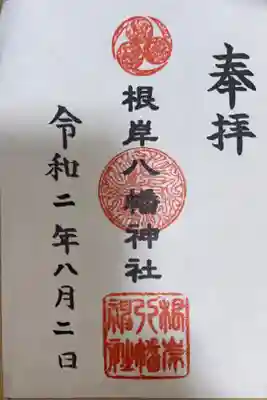 奉拝
根岸八幡神社
令和二年八月二日
根岸八幡神社